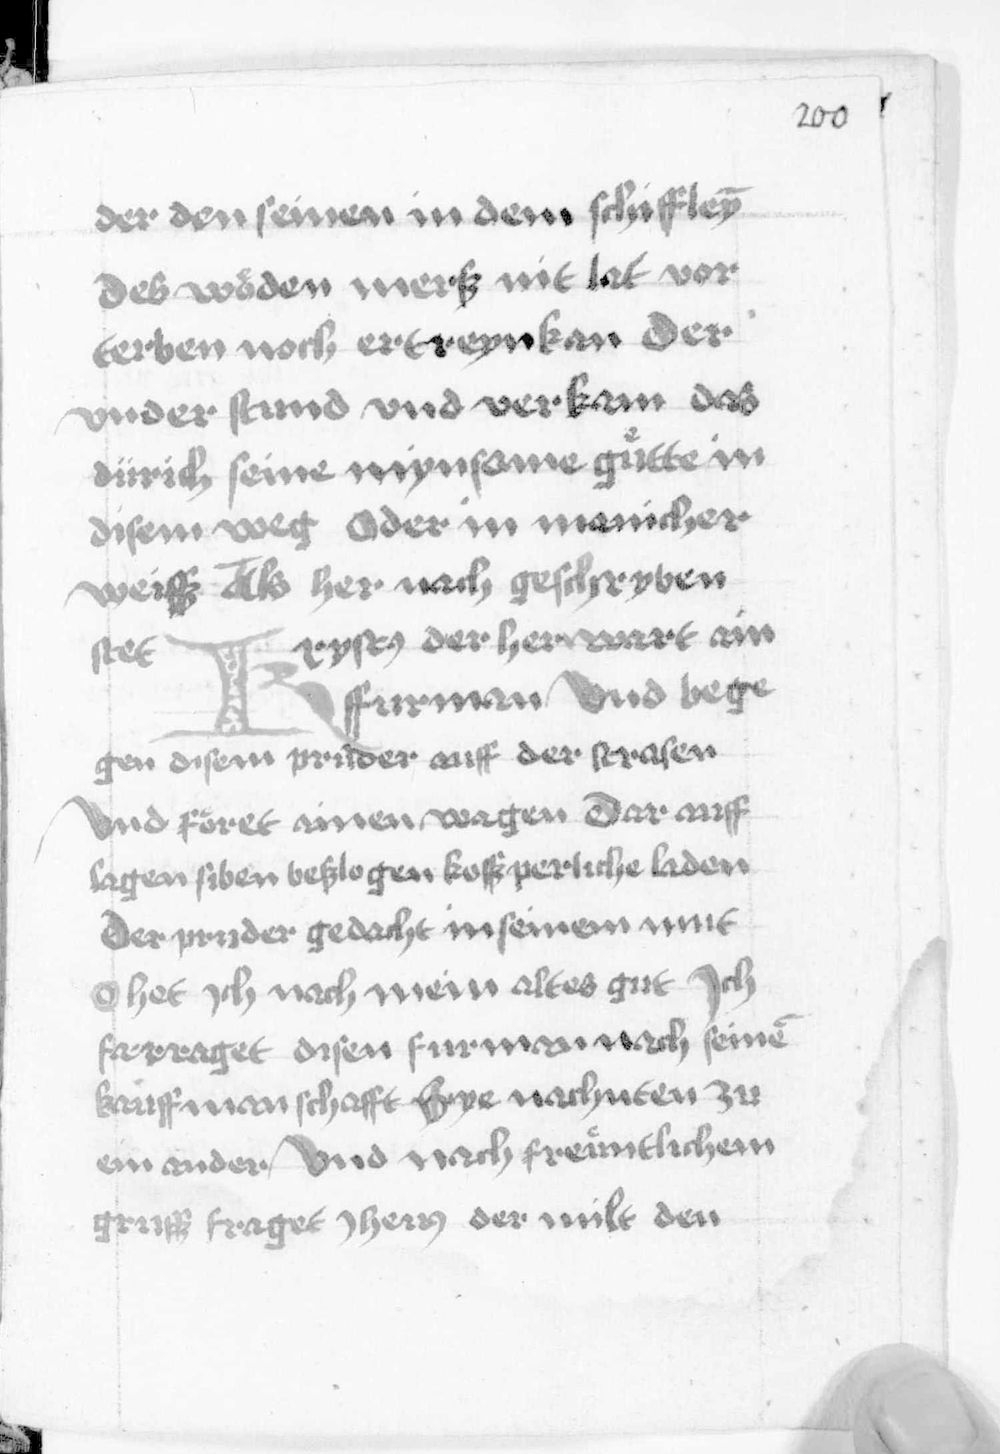 200
der den seinen in dem schiffleȳ
Des wöden merß nit lat vor
terben noch ertreynkan Der
vnder stund vnd verkam das
dürich seine miynsame gůtte in
disem weg Oder in manicher
weiſſz Als her nach geschryben
stet Krystꝰ der her wart ain
ffurman Vnd bege
gen disem prüder auff der strasen
Vnd föret ainen wagen Dar auff
lagen siben beßlogen koſſzperliche laden
Der pruder gedacht in seinem mut
O het ich nach mein altes gut Ich
farraget disen furman nach seinē
kauffmanschafft Sye nachnten zu
ein ander Vnd nach freüntlichem
gruſſz fraget Jhesꝰ der milt den